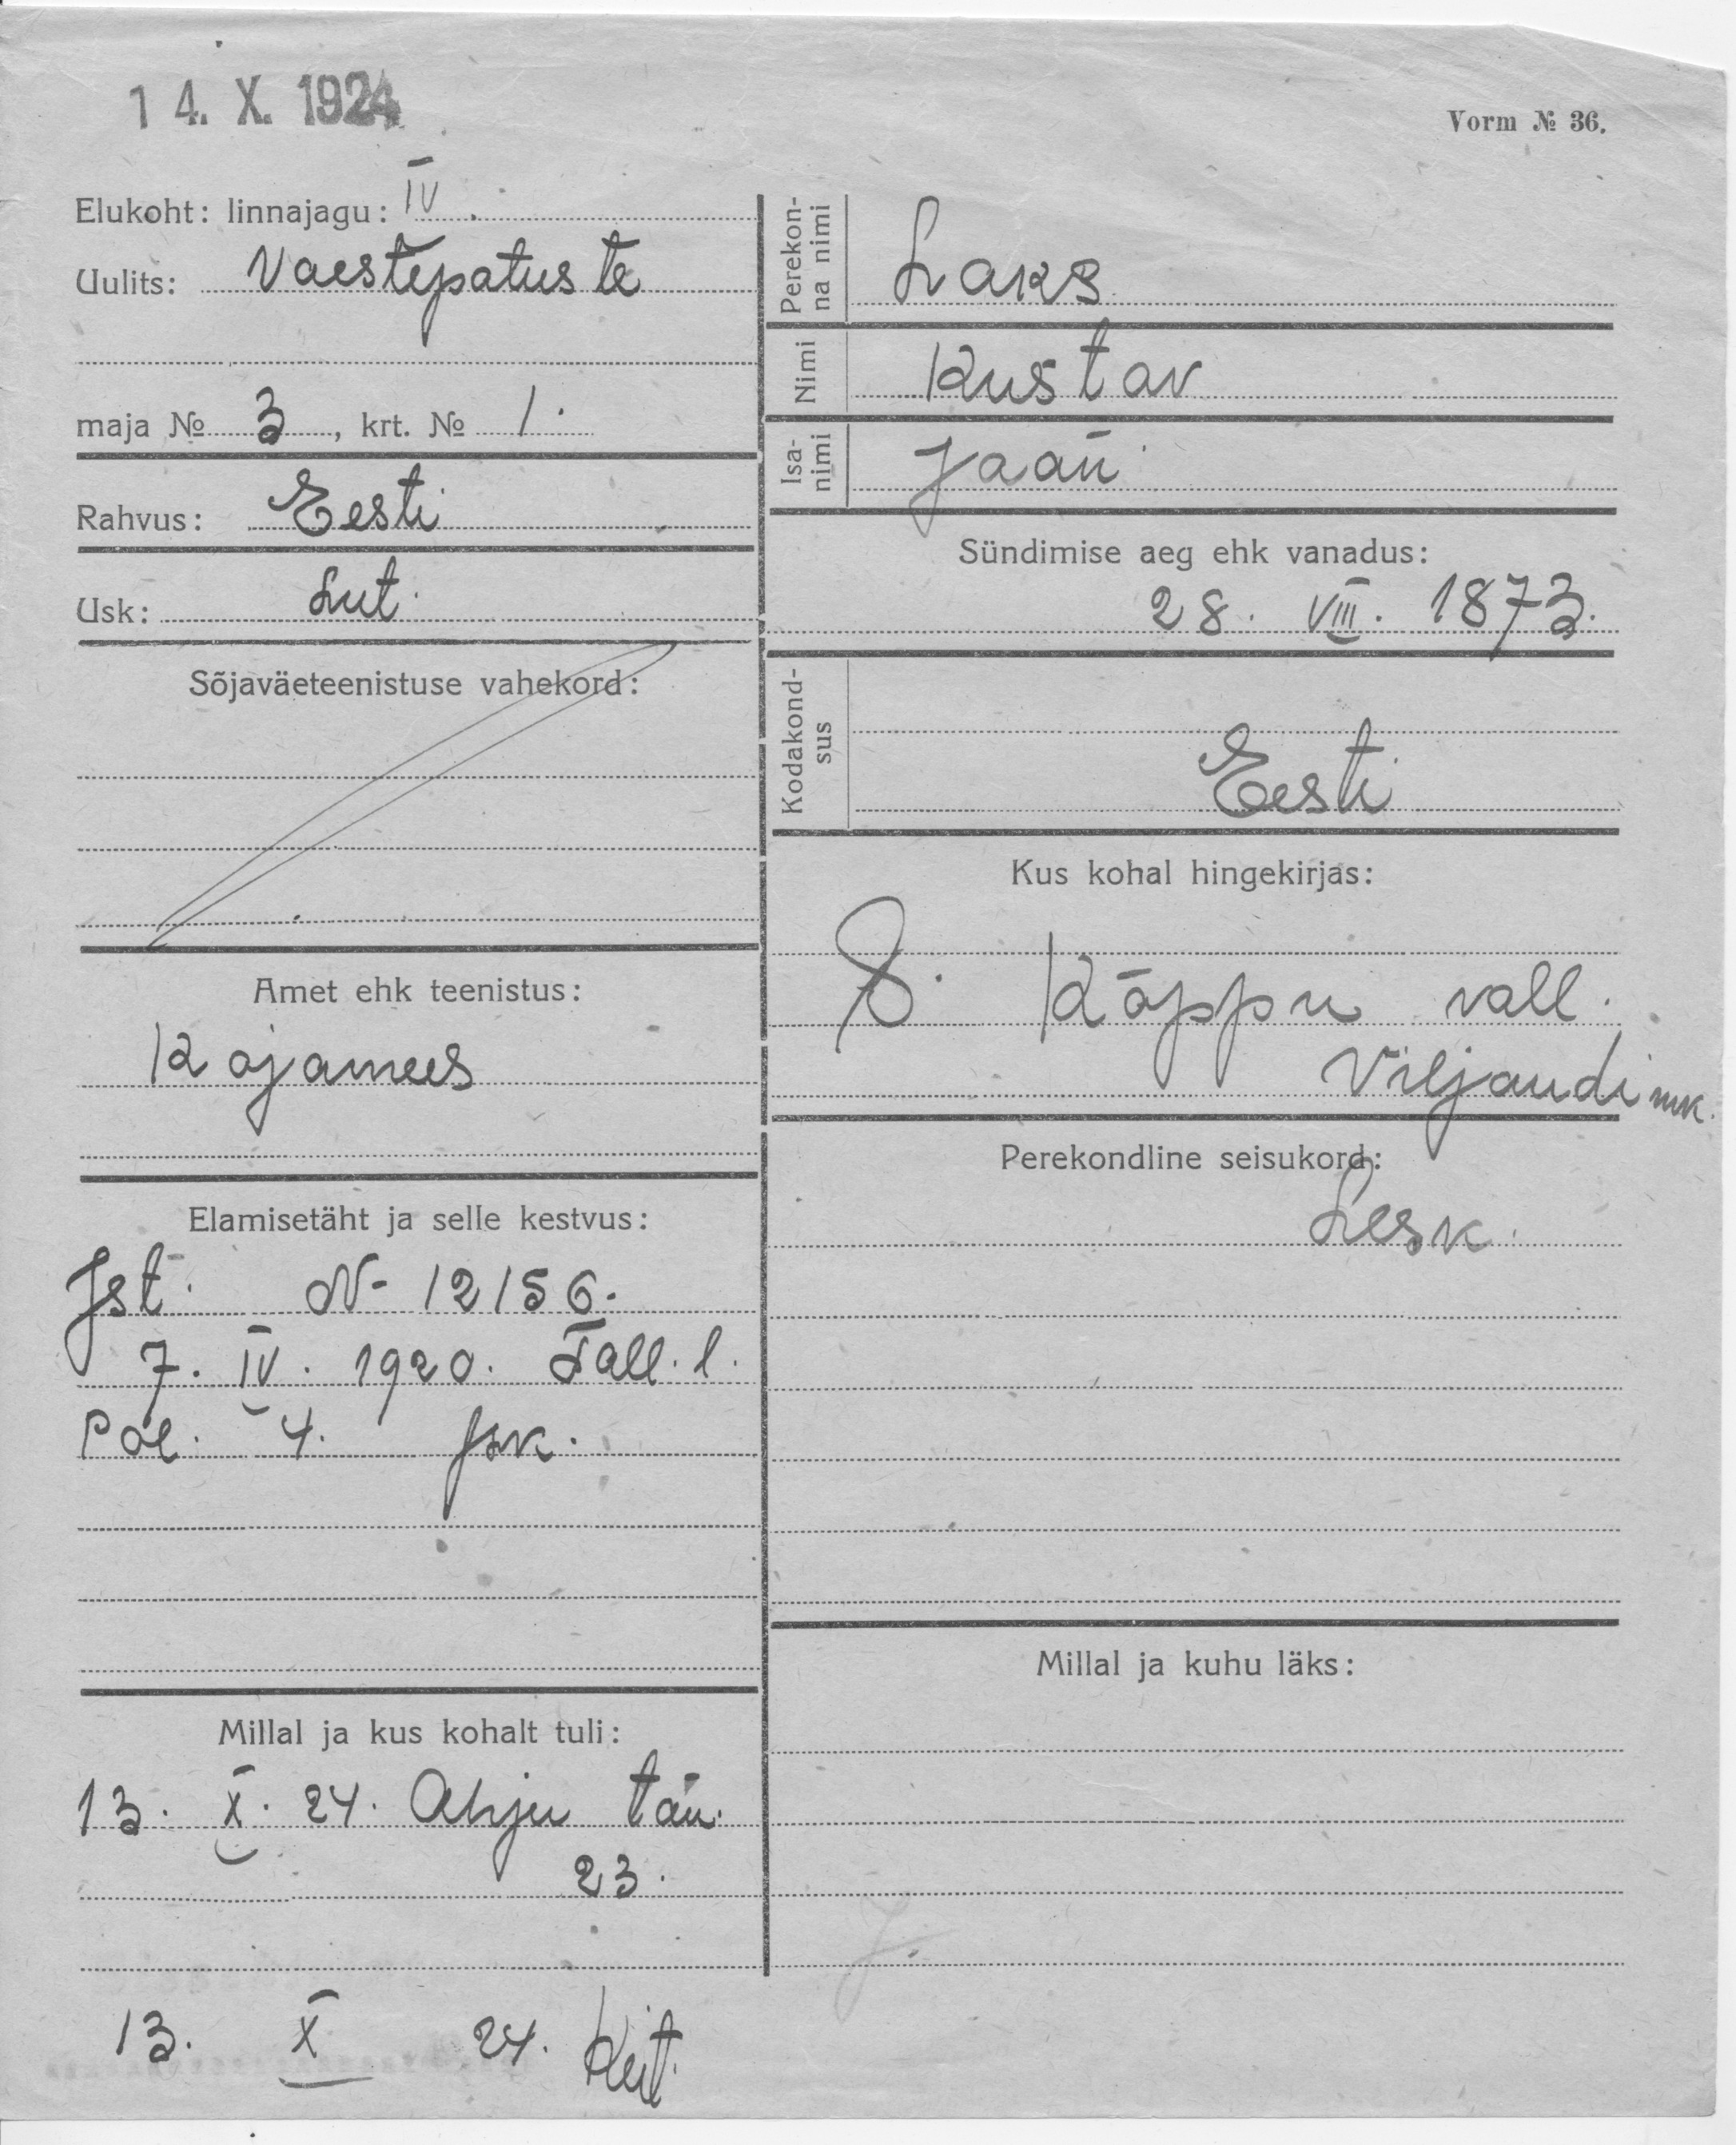 14. X. 1924
Vorm № 36.
Elukoht: linnajagu: IV.
Uulits: Vaestepatuste
maja № 3, krt. № 1.
Rahvus: Eesti
Usk: Lut.
Sõjaväeteenistuse vahekord:
Amet ehk teenistus:
Kojamees
Elamisetäht ja selle kestvus:
Jst. N- 12156.
7. IV. 1920. Tall. l.
Pol. 4. jsk.
Millal ja kus kohalt tuli:
13. X. 24. Ahju tän.
23.
13. X 24.
Perekon-
na nimi
Laks
Nimi
Kustav
Isa-
nimi
Jaan
Sündimise aeg ehk vanadus:
28. VIII. 1873.
Kodakond-
sus
Eesti
Kus kohal hingekirjas:
Kõppu vall.
Viljandi mk.
Perekondline seisukord:
Lesk.
Millal ja kuhu läks: